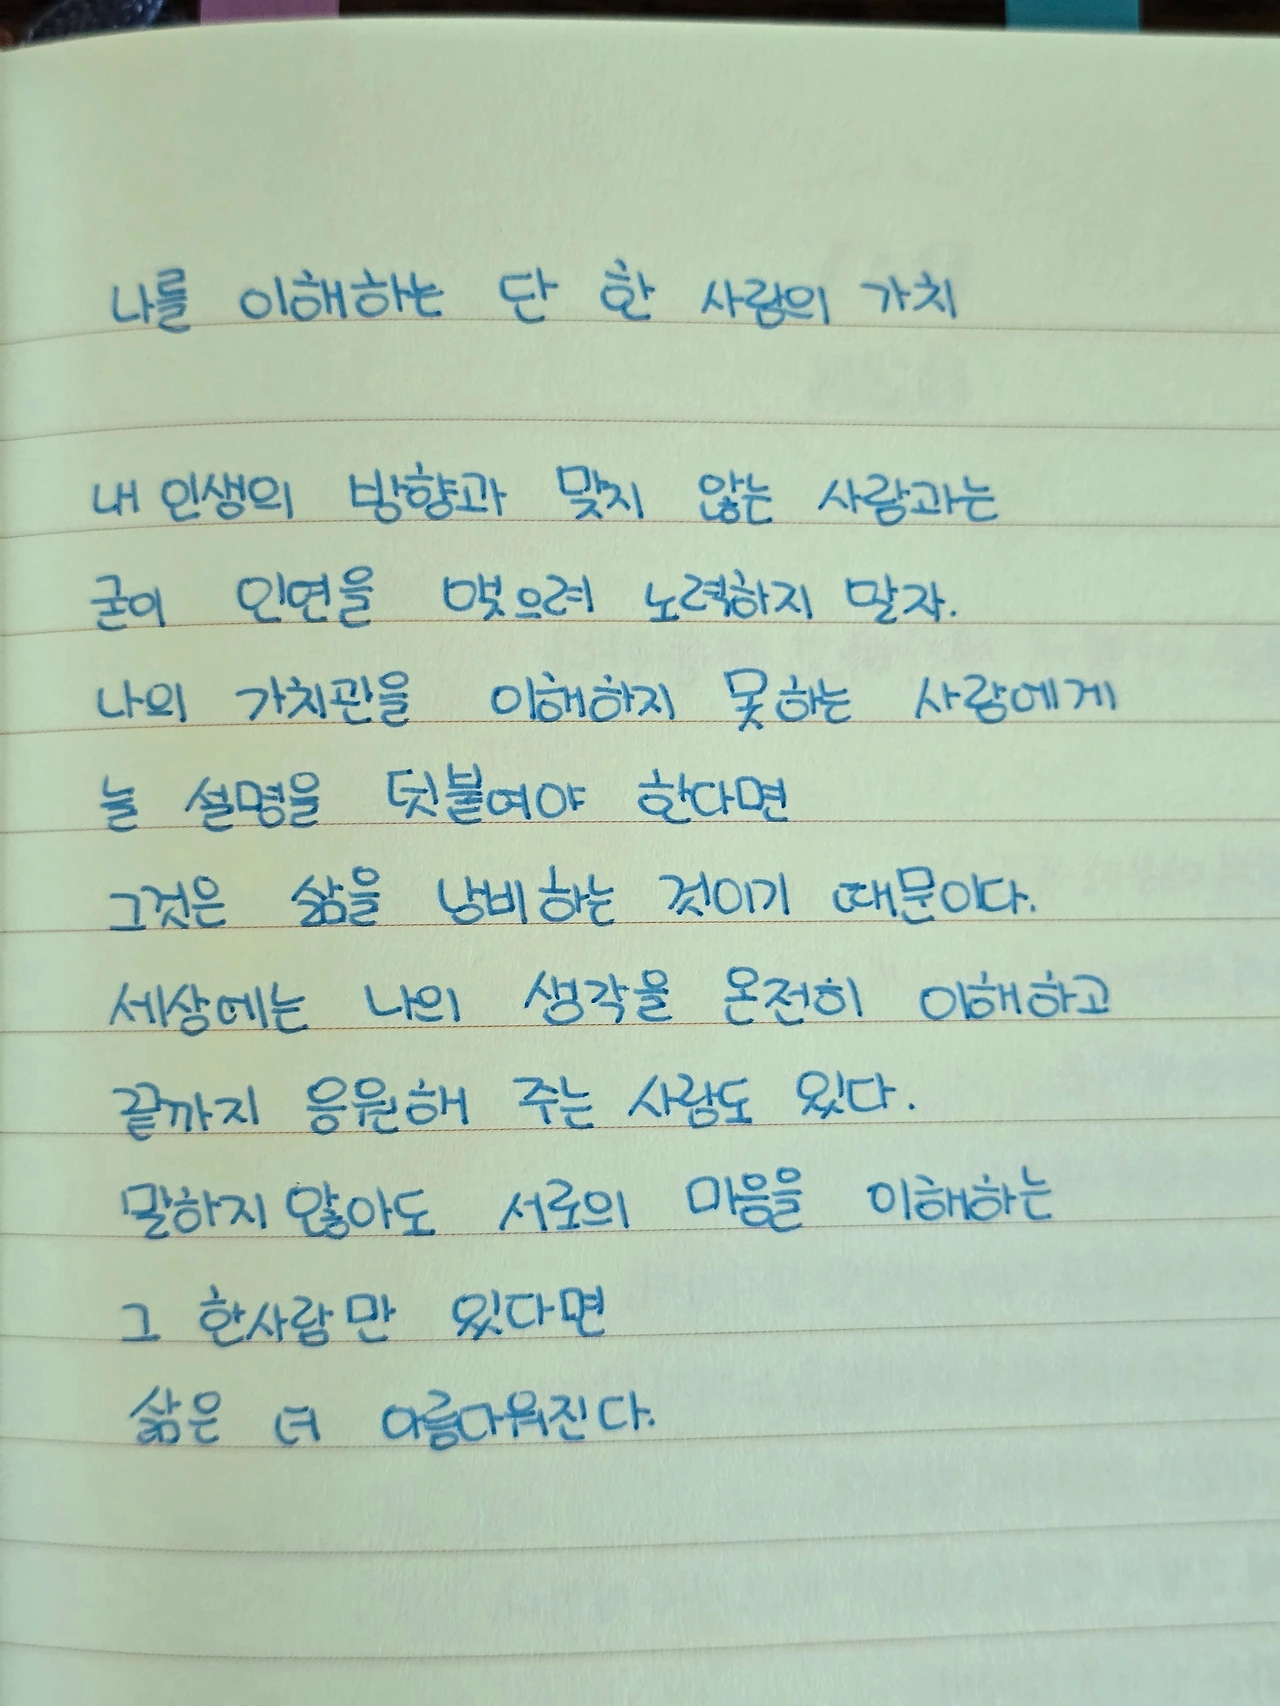 나를 이해하는 단 한 사람의 가치
내 인생의 방향과 맞지 않는 사람과는
굳이 인연을 맺으려 노력하지 말자.
나의 가치관을 이해하지 못하는 사람에게
늘 설명을 덧붙여야 한다면
그것은 삶을 낭비하는 것이기 때문이다.
세상에는 나의 생각을 온전히 이해하고
끝까지 응원해 주는 사람도 있다.
말하지 않아도 서로의 마음을 이해하는
그 한사람만 있다면
삶은 더 아름다워진다.